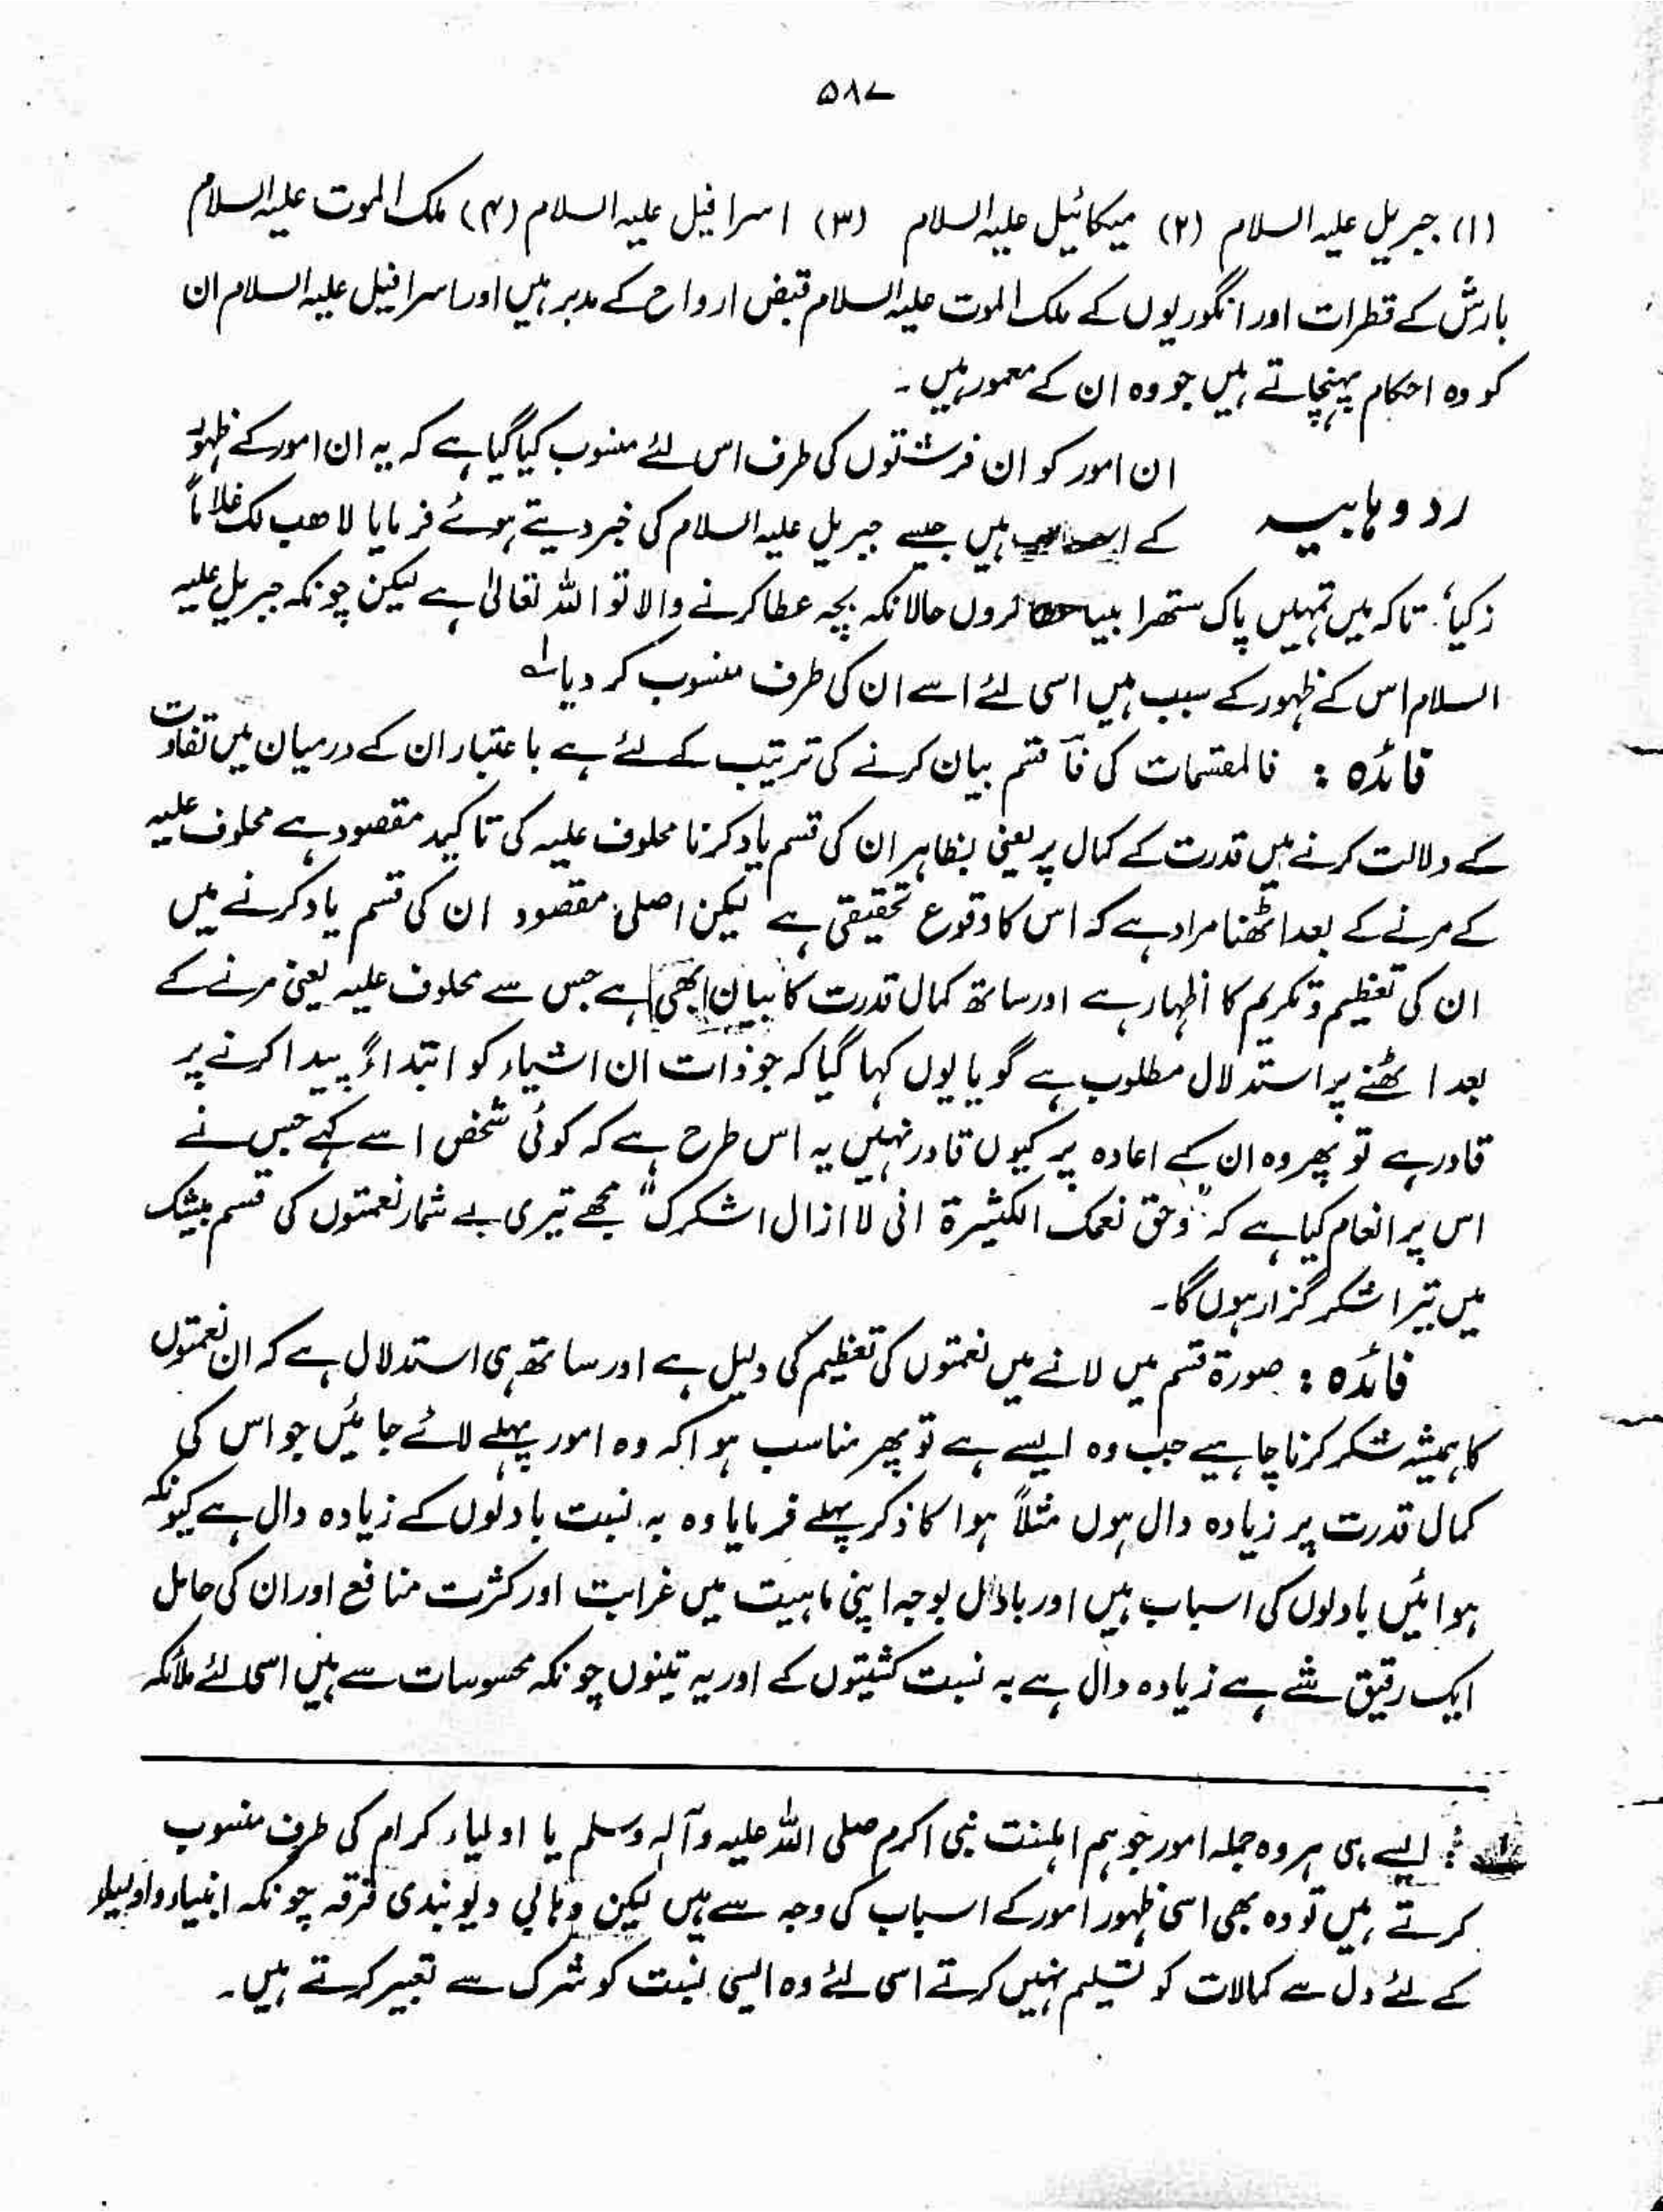 ۵۸۷
(۱) جبریل علیہ السلام (۲) میکائیل علیہ السلام (۳) اسرافیل علیہ السلام (۴) ملک الموت علیہ السلام
بارش کے قطرات اور انگوریوں کے ملک الموت علیہ السلام قبض ارواح کے مدبر ہیں اور اسرافیل علیہ السلام ان
کو وہ احکام پہنچاتے ہیں جو وہ ان کے معمور ہیں ۔
ان امور کو ان فرشتوں کی طرف اس لئے منسوب کیا گیا ہے کہ یہ ان امور کے ظہور
رد وہابیہ
کے ہیں جیسے جبریل علیہ السلام کی خبر دیتے ہوئے فرمایا لاھب لک غلاماً
زکیاً، تاکہ میں تمہیں پاک ستھرا کروں حالانکہ بچہ عطا کرنے والا تو اللہ تعالیٰ ہے لیکن چونکہ جبریل علیہ
السلام اس کے ظہور کے سبب ہیں اسی لئے اسے ان کی طرف منسوب کر دیا ؎۱
فائدہ : فالمقسمات کی فآ قسم بیان کرنے کی ترتیب کے لئے ہے باعتبار ان کے درمیان میں تفاوت
کے دلالت کرنے میں قدرت کے کمال پر یعنی بظاہر ان کی قسم یاد کرنا محلوف علیہ کی تاکید مقصود ہے محلوف علیہ
کے مرنے کے بعد اٹھنا مراد ہے کہ اس کا وقوع تحقیقی ہے لیکن اصلی مقصود ان کی قسم یاد کرنے میں
ان کی تعظیم و تکریم کا اظہار ہے اور ساتھ کمال قدرت کا بیان بھی ہے جس سے محلوف علیہ یعنی مرنے کے
بعد اٹھنے پر استدلال مطلوب ہے گویا یوں کہا گیا کہ جو ذات ان اشیاء کو ابتداءً پیدا کرنے پر
قادر ہے تو پھر وہ ان کے اعادہ پر کیوں قادر نہیں یہ اس طرح ہے کہ کوئی شخص اسے کہے جس نے
اس پر انعام کیا ہے کہ "وحق نعمک الکثیرۃ انی لا ازال اشکرک" مجھے تیری بے شمار نعمتوں کی قسم بیشک
میں تیرا شکر گزار ہوں گا۔
فائدہ : صورۃ قسم میں لانے میں نعمتوں کی تعظیم کی دلیل ہے اور ساتھ ہی استدلال ہے کہ ان نعمتوں
کا ہمیشہ شکر کرنا چاہیے جب وہ ایسے ہے تو پھر مناسب ہوا کہ وہ امور پہلے لائے جائیں جو اس کی
کمال قدرت پر زیادہ دال ہوں مثلاً ہوا کا ذکر پہلے فرمایا وہ بہ نسبت بادلوں کے زیادہ دال ہے کیونکہ
ہوائیں بادلوں کی اسباب ہیں اور بادل بوجہ اپنی ماہیت میں غرابت اور کثرت منافع اور ان کی حامل
ایک رقیق شے ہے زیادہ دال ہے بہ نسبت کشتیوں کے اور یہ تینوں چونکہ محسوسات سے ہیں اسی لئے ملائکہ
؎۱ : ایسے ہی ہر وہ جملہ امور جو ہم اہلسنت نبی اکرم صلی اللہ علیہ وآلہ وسلم یا اولیاء کرام کی طرف منسوب
کرتے ہیں تو وہ بھی اسی ظہور امور کے اسباب کی وجہ سے ہیں لیکن وہابی دیوبندی فرقہ چونکہ انبیاء و اولیاء
کے لئے دل سے کمالات کو تسلیم نہیں کرتے اسی لئے وہ ایسی نسبت کو شرک سے تعبیر کرتے ہیں۔